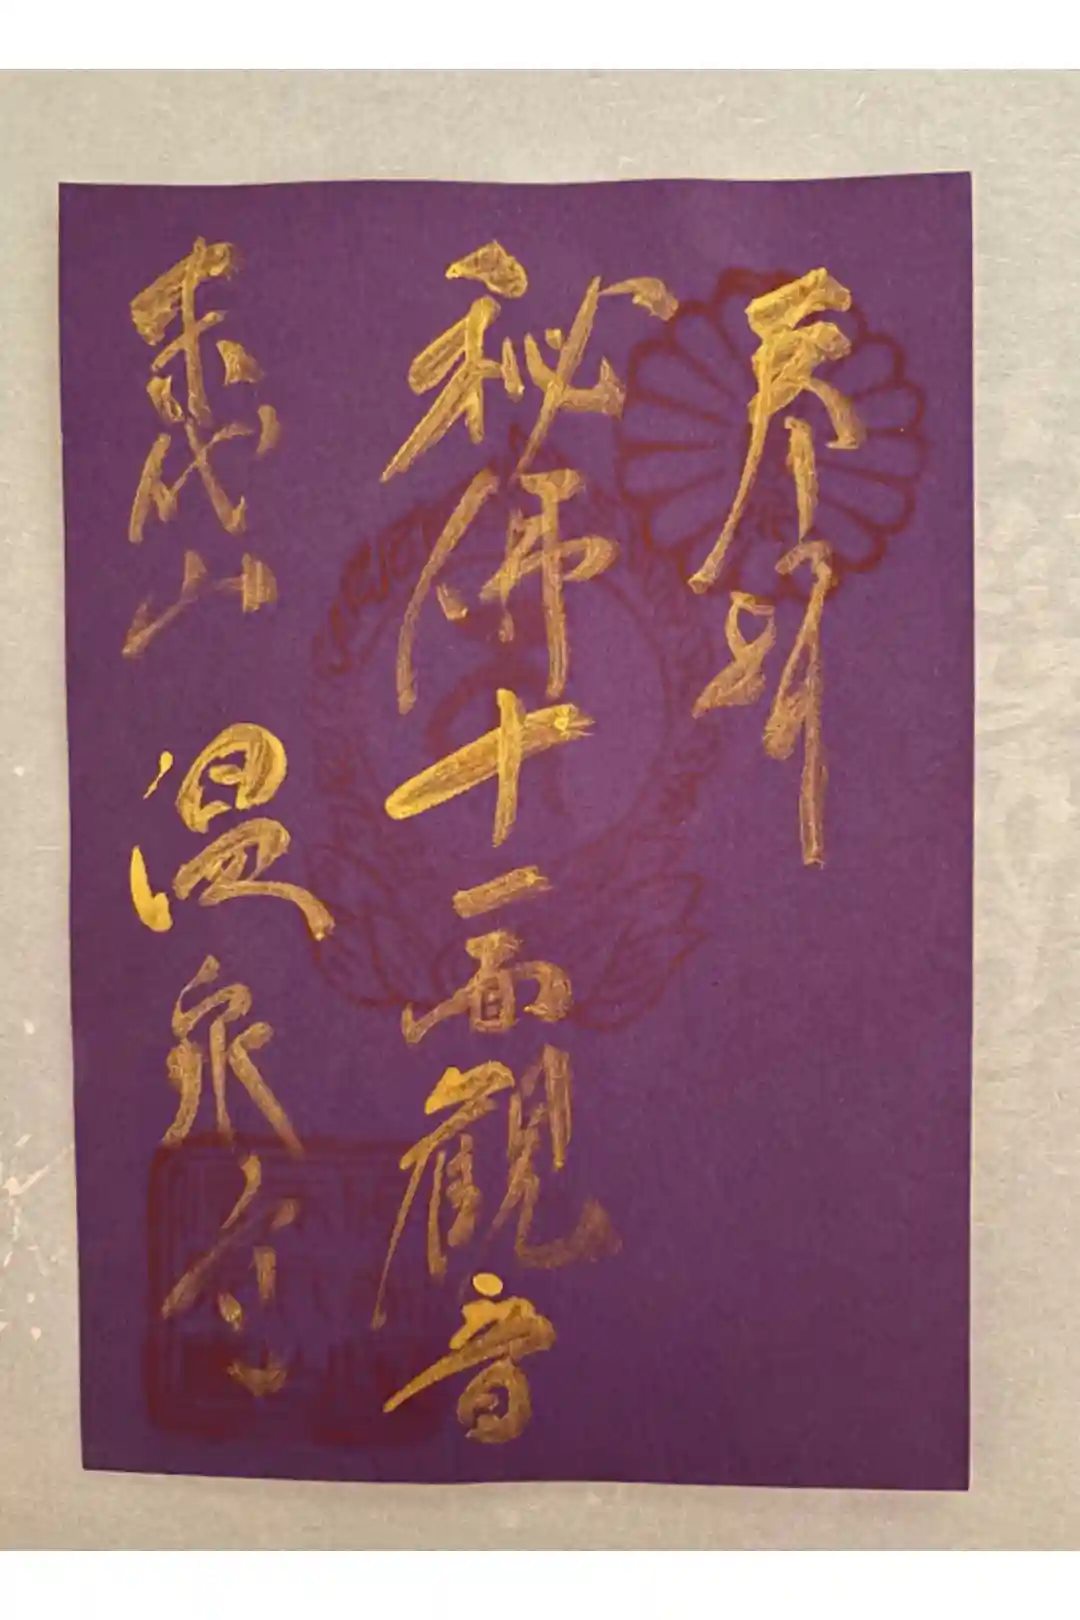 奉拝
秘佛十一面観音
末代山 温泉寺